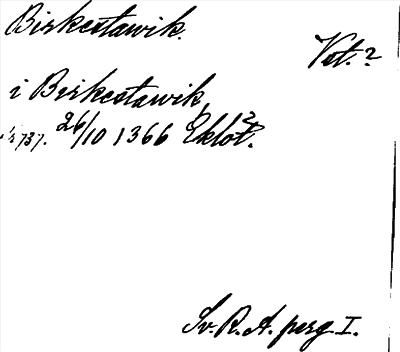 Birkestawik.
Vet.?
i Birkestawik,
nr 737. 26/10 1366 Eklöt?.
Sv. R. A. perg I.